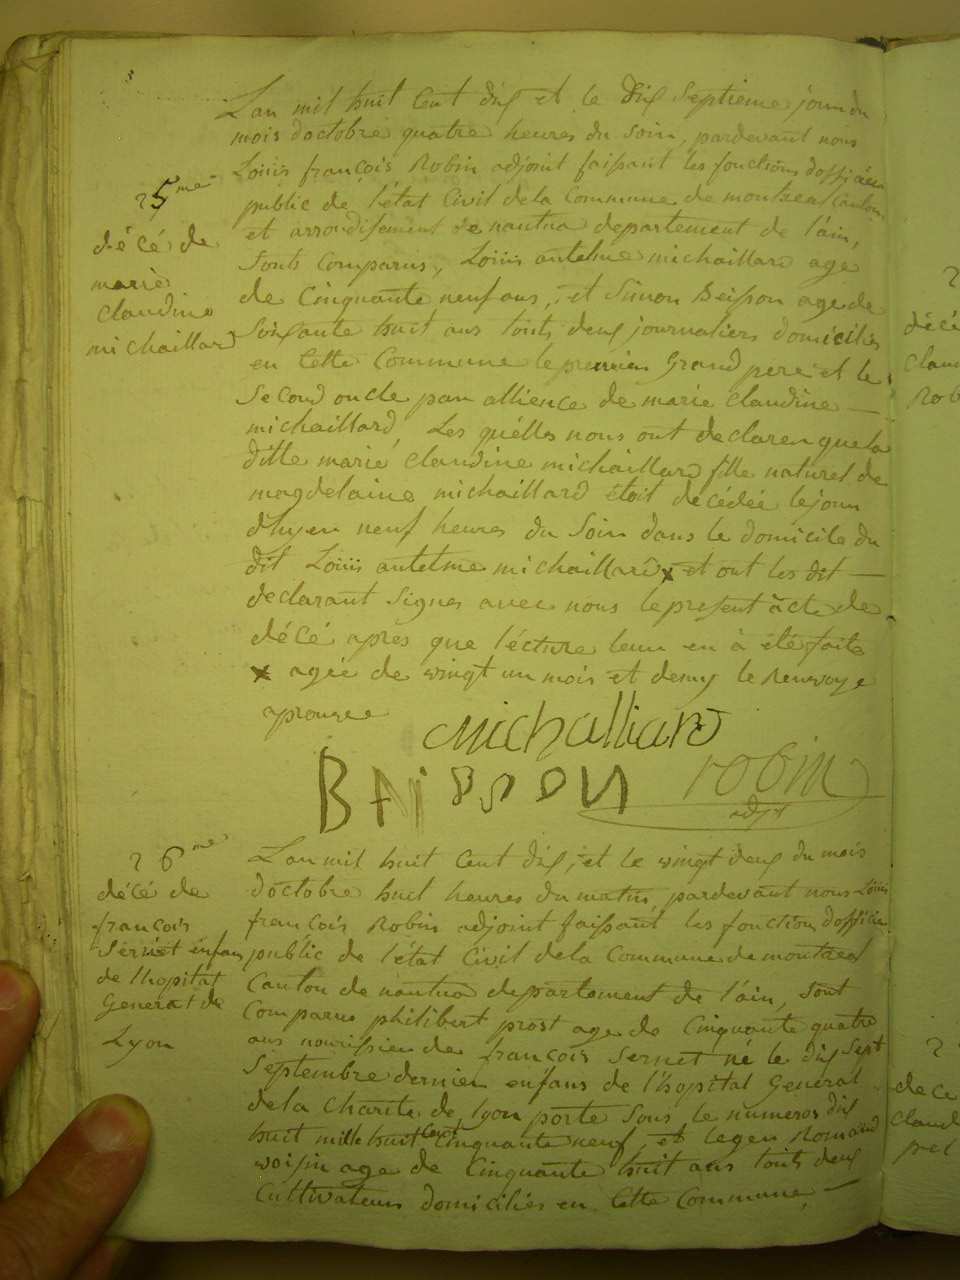 25me
décé de
marie
claudine
michaillard
L'an mil huit Cent dix et le dix Septieme jour du
mois doctobre quatre heures du Soir, pardevant nous
Loüis françois Robin adjoint faissant les fonctions dofficier
public de l'état Civil dela Commune de montreal Canton
et arrondisement de nantua departement de l'ain,
Sonts Comparus, Loüis antelme michaillard age
de Cinquante neuf ans, et Simon Beisson age de
Soixante huit ans touts deux journaliers domiciliés
en Cette Commune le premier Grand pere et le
Second oncle par allience de marie claudine —
michaillard, Les quélles nous ont declarer que la
ditte marie Claudine michaillard fille naturel de
magdelaine michaillard étoit decédée le jour
d'hyer neuf heures du Soir dans le domicile du
dit Loüis antelme michaillard x et ont les dit —
declarant Signes avec nous le present acte de
décé apres que lécture leur en à été faite
x agée de vingt un mois et demy le renvoye
aprouvee
Michalliard
BAiSSON
robin
adjt
26me
décé de
françois
Sernet énfan
de lhopital
General de
Lyon
L'an mil huit Cent dix, et le vingt deux du mois
doctobre huit heures du matin, pardevant nous Loüis
françois Robin adjoint faissant les fonction dofficier
public de l'état Civil dela Commune de montreal
Canton de nantua departement de l'ain, Sont
Comparus philibert prost age de Cinquante quatre
ans nourissier de françois Sernet né le dix Sept
Septembre dernier enfans de l'hopital General
dela Charite de lyon porte Sous le numeros dix
huit mille huit Cent Cinquante neuf, et legen Romand
voisin age de Cinquante huit ans touts deux
Cultivateurs domiciliés en Cette Commune, —
décé
Claud
Rob
dece
Claud
pel